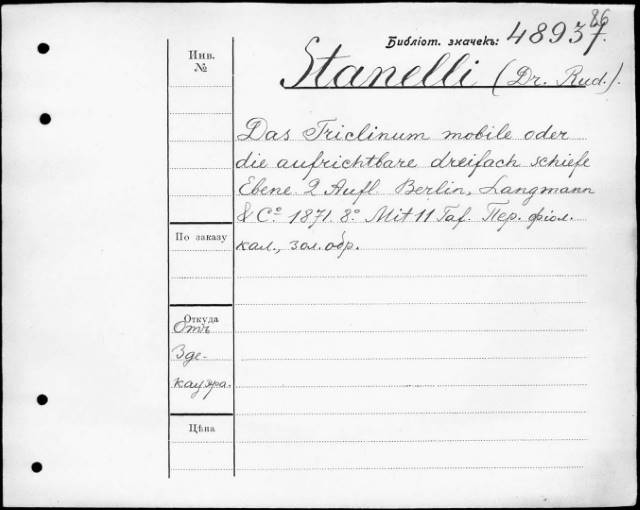 86
Библіот. значекъ: 48937.
Инв.
№
Stanelli (Dr. Rud.).
Das Triclinum mobile oder
die aufrichtbare dreifach schiefe
Ebene 2 Aufl. Berlin, Langmann
& Cº. 1871. 8º. Mit 11 Taf. Пер. фіол.
кал., зол. обр.
По заказу
Откуда
Отъ
Зде-
кауэра.
Цѣна